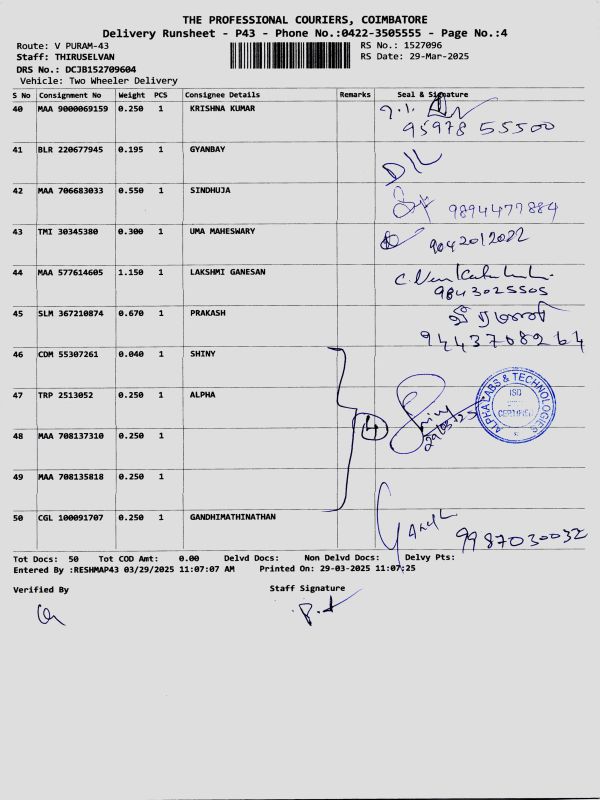 THE PROFESSIONAL COURIERS, COIMBATORE
Delivery Runsheet - P43 - Phone No.:0422-3505555 - Page No.:4
Route: V PURAM-43 RS No.: 1527096
Staff: THIRUSELVAN RS Date: 29-Mar-2025
DRS No.: DCJB152709604
Vehicle: Two Wheeler Delivery
S No Consignment No Weight PCS Consignee Details Remarks Seal & Signature
40 MAA 9000069159 0.250 1 KRISHNA KUMAR
95978 55500
41 BLR 220677945 0.195 1 GYANBAY
42 MAA 706683033 0.550 1 SINDHUJA
9894477884
43 TMI 30345380 0.300 1 UMA MAHESWARY
9042012022
44 MAA 577614605 1.150 1 LAKSHMI GANESAN
9843025505
45 SLM 367210874 0.670 1 PRAKASH
9443708264
46 CDM 55307261 0.040 1 SHINY
47 TRP 2513052 0.250 1 ALPHA
ALPHA LABS & TECHNOLOGIES
ISO
CERTIFIED
4
48 MAA 708137310 0.250 1
49 MAA 708135818 0.250 1
50 CGL 100091707 0.250 1 GANDHIMATHINATHAN
9987030032
Tot Docs: 50 Tot COD Amt: 0.00 Delvd Docs: Non Delvd Docs: Delvy Pts:
Entered By :RESHMAP43 03/29/2025 11:07:07 AM Printed On: 29-03-2025 11:07:25
Verified By Staff Signature